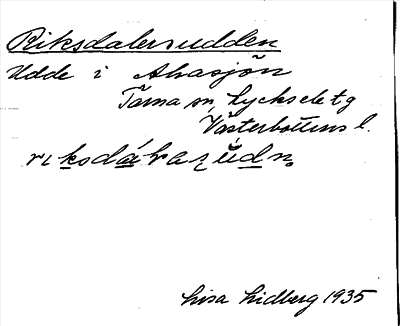 Riksdalersudden
Udde i Ahasjön
Tärna sn, Lycksele tg
Västerbottens l.
riksdáḷarʒùdn.
Lisa Lidberg 1935